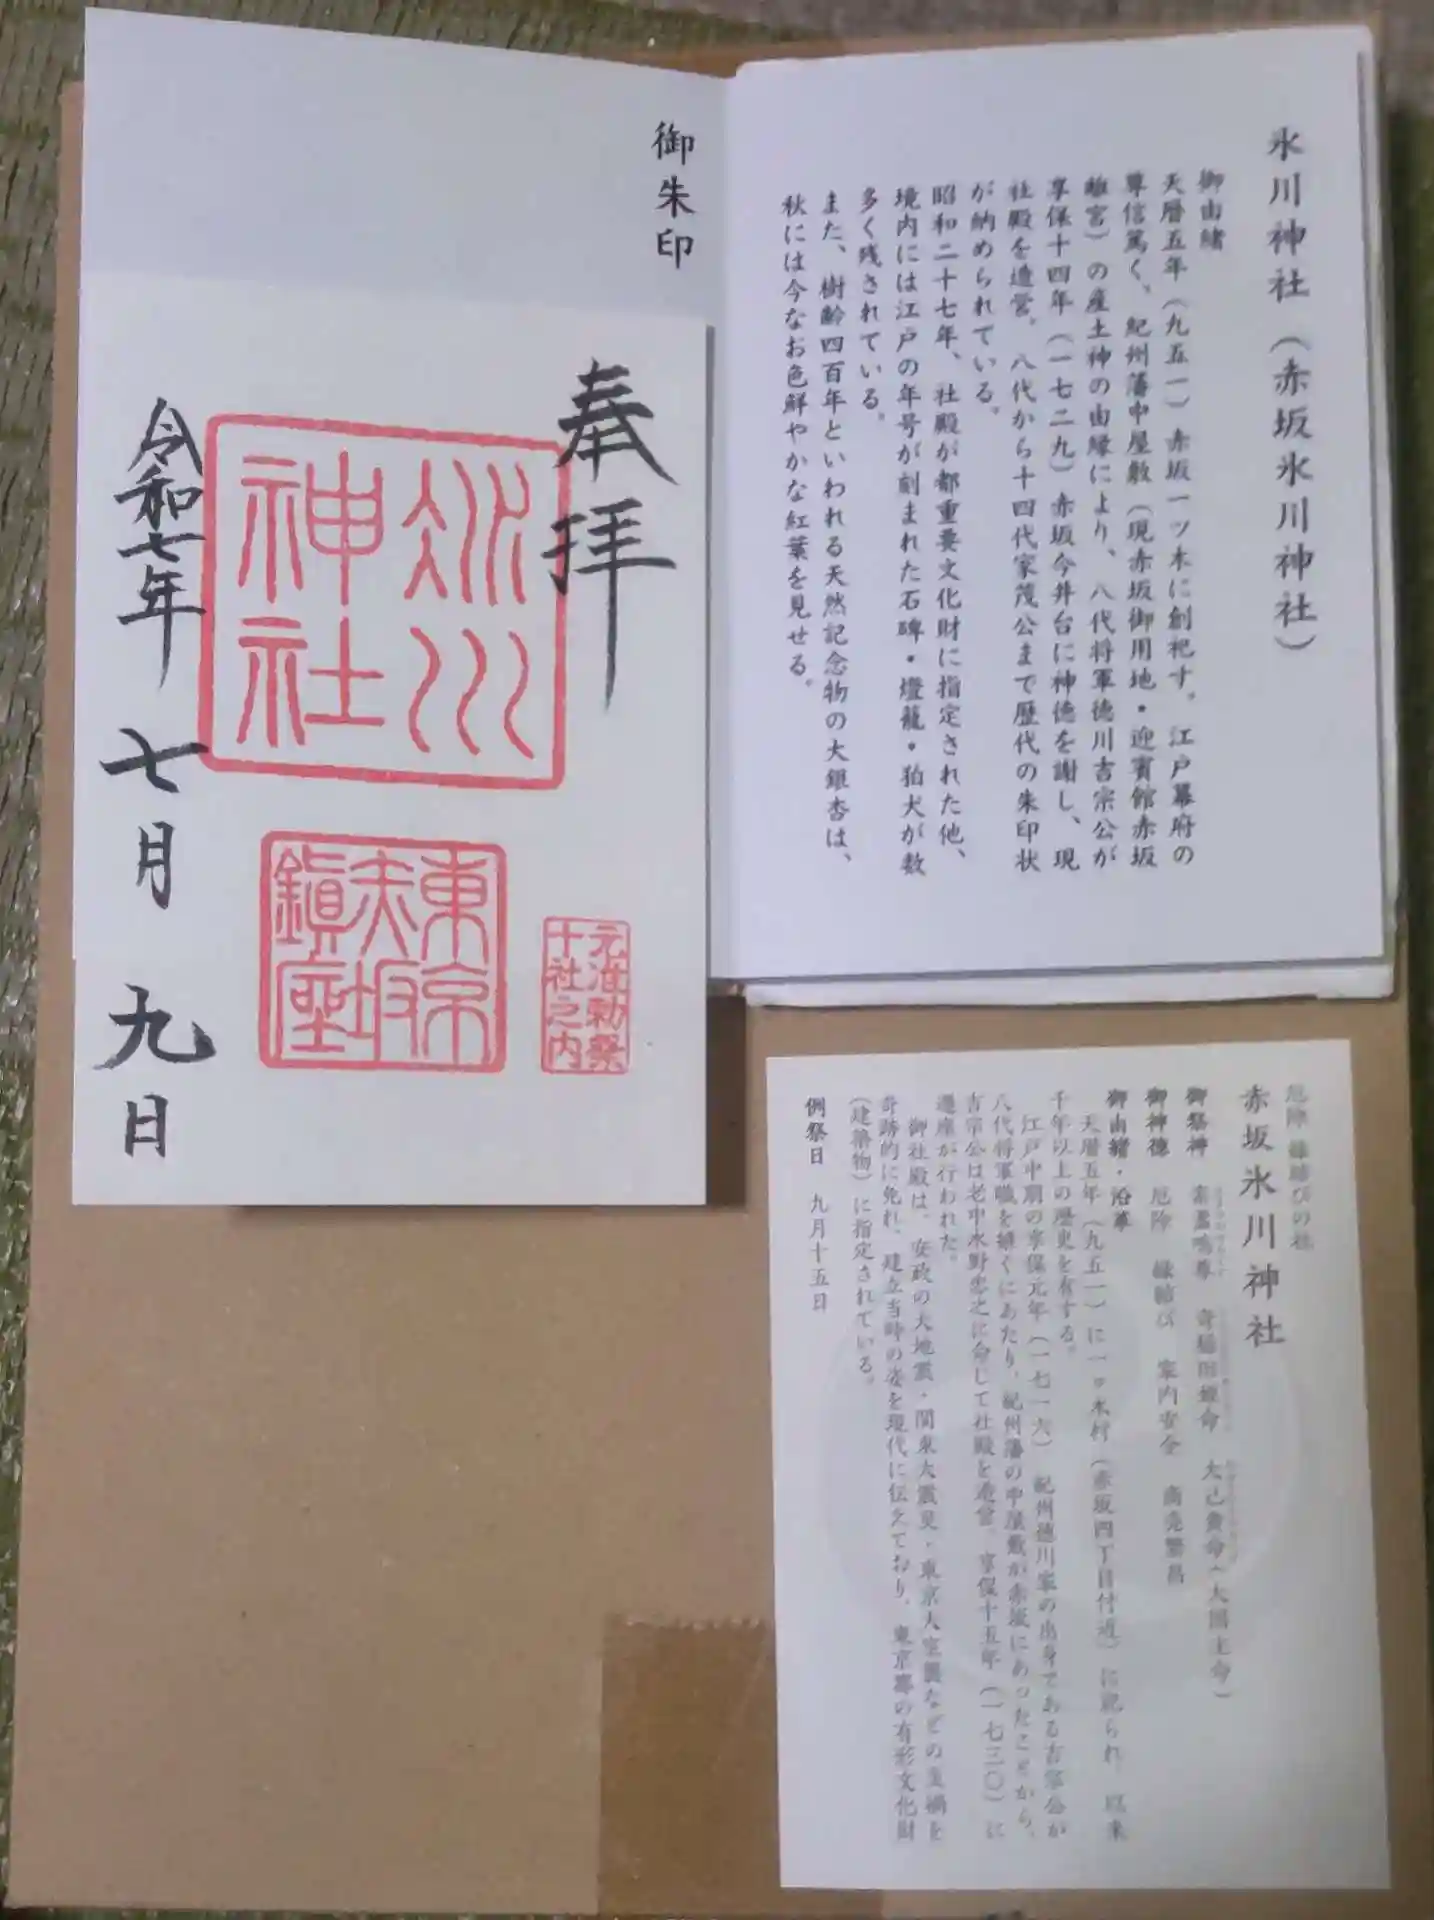 氷川神社（赤坂氷川神社）
御由緒
天暦五年（九五一）赤坂一ツ木に創祀す。江戸幕府の
尊信篤く、紀州藩中屋敷（現赤坂御用地・迎賓館赤坂
離宮）の産土神の由縁により、八代将軍徳川吉宗公が
享保十四年（一七二九）赤坂今井台に神徳を謝し、現
社殿を造営。八代から十四代家茂公まで歴代の朱印状
が納められている。
昭和二十七年、社殿が都重要文化財に指定された他、
境内には江戸の年号が刻まれた石碑・燈籠・狛犬が数
多く残されている。
また、樹齢四百年といわれる天然記念物の大銀杏は、
秋には今なお色鮮やかな紅葉を見せる。
御朱印
奉拝
氷川
神社
元准勅祭
十社之内
東京
赤坂
鎮座
令和七年 七月 九日
厄除 縁結びの社
赤坂氷川神社
御祭神 素盞嗚尊 奇稲田姫命 大己貴命（大国主命）
御神徳 厄除 縁結び 家内安全 商売繁昌
御由緒・沿革
天暦五年（九五一）に一ツ木村（赤坂四丁目付近）に祀られ、以来
千年以上の歴史を有する。
江戸中期の享保元年（一七一六）、紀州徳川家の出身である吉宗公が
八代将軍職を継ぐにあたり、紀州藩の中屋敷が赤坂にあったことから、
吉宗公は老中水野忠之に命じて社殿を造営、享保十五年（一七三〇）に
遷座が行われた。
御社殿は、安政の大地震・関東大震災・東京大空襲などの災禍を
奇跡的に免れ、建立当時の姿を現代に伝えており、東京都の有形文化財
（建築物）に指定されている。
例祭日 九月十五日